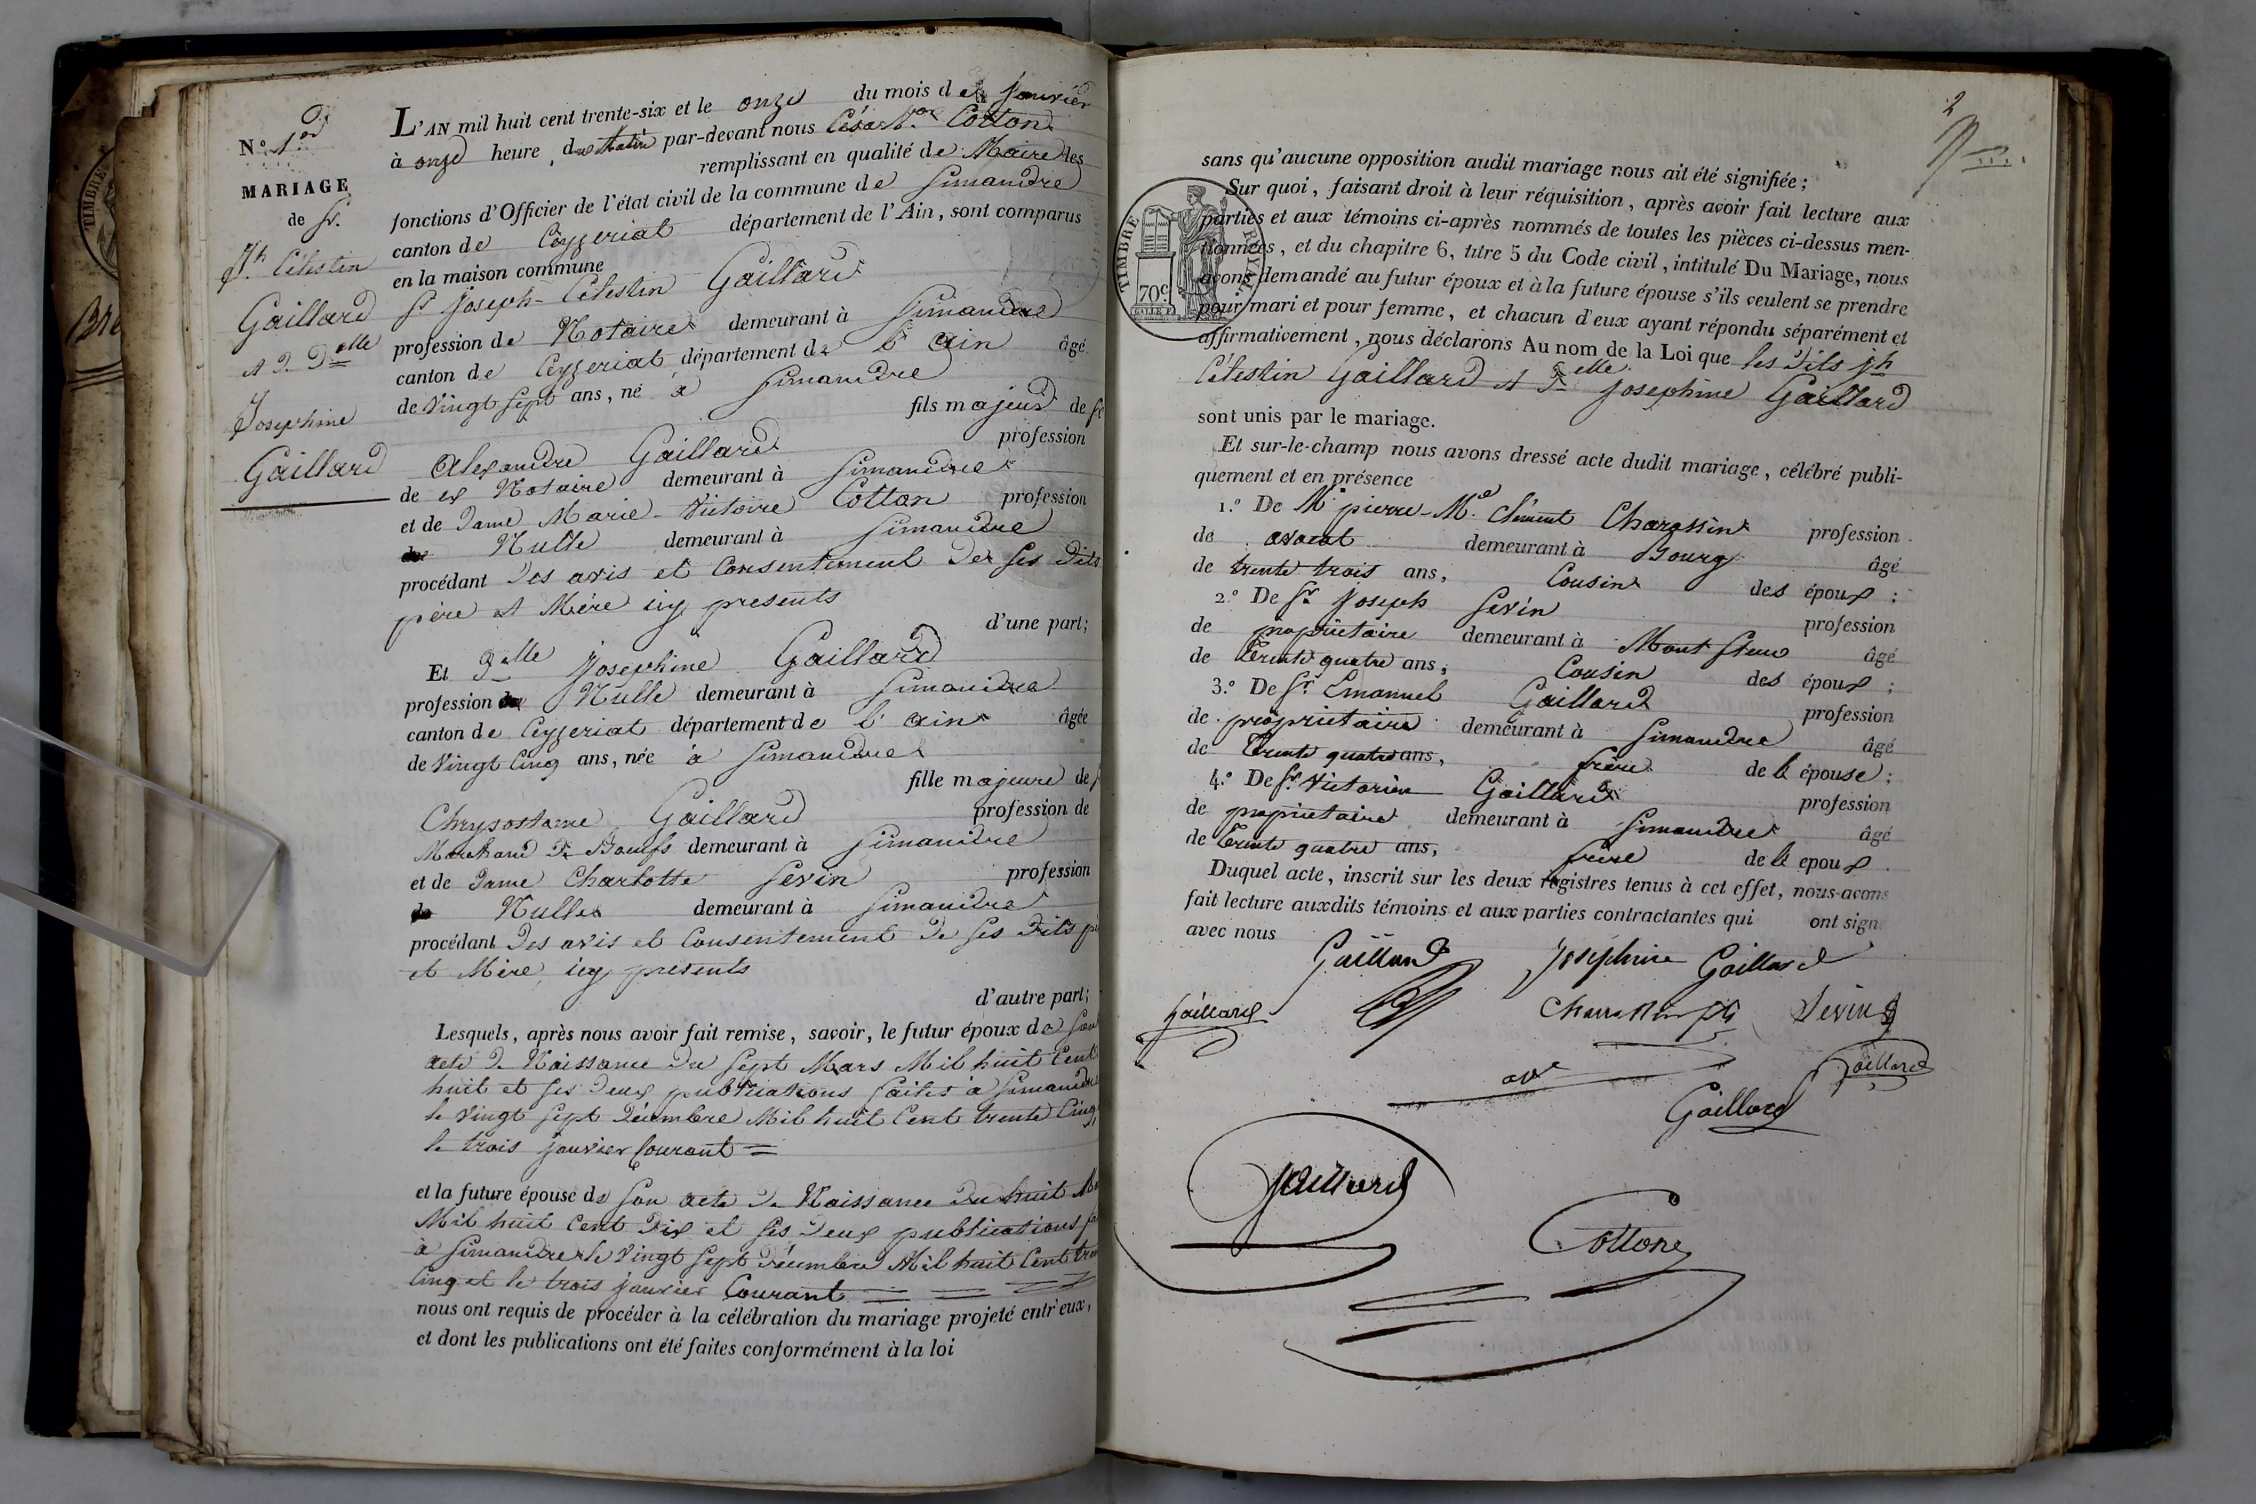 N.o 1.er
MARIAGE
de Sr.
Jh. Célestin
Gaillard
et D. Delle
Josephine
Gaillard
L'AN mil huit cent trente-six et le onze du mois de Janvier
à onze heure du Matin par-devant nous César Cotton
remplissant en qualité de Maire les
fonctions d'Officier de l'état civil de la commune de Simandre
canton de Ceyzeriat département de l'Ain, sont comparus
en la maison commune
Sr Joseph-Célestin Gaillard
profession de Notaire demeurant à Simandre
canton de Ceyzeriat département de l'Ain âgé
de Vingt Sept ans, né à Simandre
fils majeur de Sr
Alexandre Gaillard profession
de ex Notaire demeurant à Simandre
et de Dame Marie-Victoire Cotton profession
de Nulle demeurant à Simandre
procédant Des avis et Consentement De Ses Dits
père et Mère icy presents
d'une part;
Et Delle Josephine Gaillard
profession de Nulle demeurant à Simandre
canton de Ceyzeriat département de l'Ain âgée
de Vingt Cinq ans, née à Simandre
fille majeure de S
Chrysostome Gaillard profession de
Marchand De Boeufs demeurant à Simandre
et de Dame Charlotte Sevin profession
de Nulle demeurant à Simandre
procédant Des avis et Consentement De Ses Dits pè
et Mère icy presents
d'autre part;
Lesquels, après nous avoir fait remise, savoir, le futur époux de Son
acte De Naissance Du Sept Mars Mil huit Cent
huit et Ses Deux publications faites à Simandre
le Vingt Sept Décembre Mil huit Cent trente Cinq
le trois janvier Courant =
et la future épouse de Son acte De Naissance Du huit M
Mil huit Cent Dix et Ses Deux publications fa
à Simandre le Vingt Sept Décembre Mil huit Cent tren
Cinq et le trois janvier Courant = = =
nous ont requis de procéder à la célébration du mariage projeté entr'eux,
et dont les publications ont été faites conformément à la loi
2
sans qu'aucune opposition audit mariage nous ait été signifiée;
Sur quoi, faisant droit à leur réquisition, après avoir fait lecture aux
parties et aux témoins ci-après nommés de toutes les pièces ci-dessus men-
tionnées, et du chapitre 6, titre 5 du Code civil, intitulé Du Mariage, nous
avons demandé au futur époux et à la future épouse s'ils veulent se prendre
pour mari et pour femme, et chacun d'eux ayant répondu séparément et
affirmativement, nous déclarons Au nom de la Loi que les Dits Jh
Célestin Gaillard et Delle Josephine Gaillard
sont unis par le mariage.
TIMBRE ROYAL
70c
Et sur-le-champ nous avons dressé acte dudit mariage, célébré publi-
quement et en présence
1.o De Mr pierre-Me. Clément Charassin profession
de avocat demeurant à Bourg âgé
de trente trois ans, Cousin des époux;
2.o De Sr Joseph Sevin profession
de propriétaire demeurant à Mont âgé
de Trente quatre ans, Cousin des époux;
3.o De Sr Emanuel Gaillard profession
de propriétaire demeurant à Simandre âgé
de Trente quatre ans, frère de l'épouse;
4.o De Sr Victorien Gaillard profession
de propriétaire demeurant à Simandre âgé
de Trente quatre ans, frère de l'epoux
Duquel acte, inscrit sur les deux registres tenus à cet effet, nous avons
fait lecture auxdits témoins et aux parties contractantes qui ont sign
avec nous
Gaillard Joséphine Gaillard
Gaillard Sevin
Gaillard
Gaillard
Gaillard
Cotton